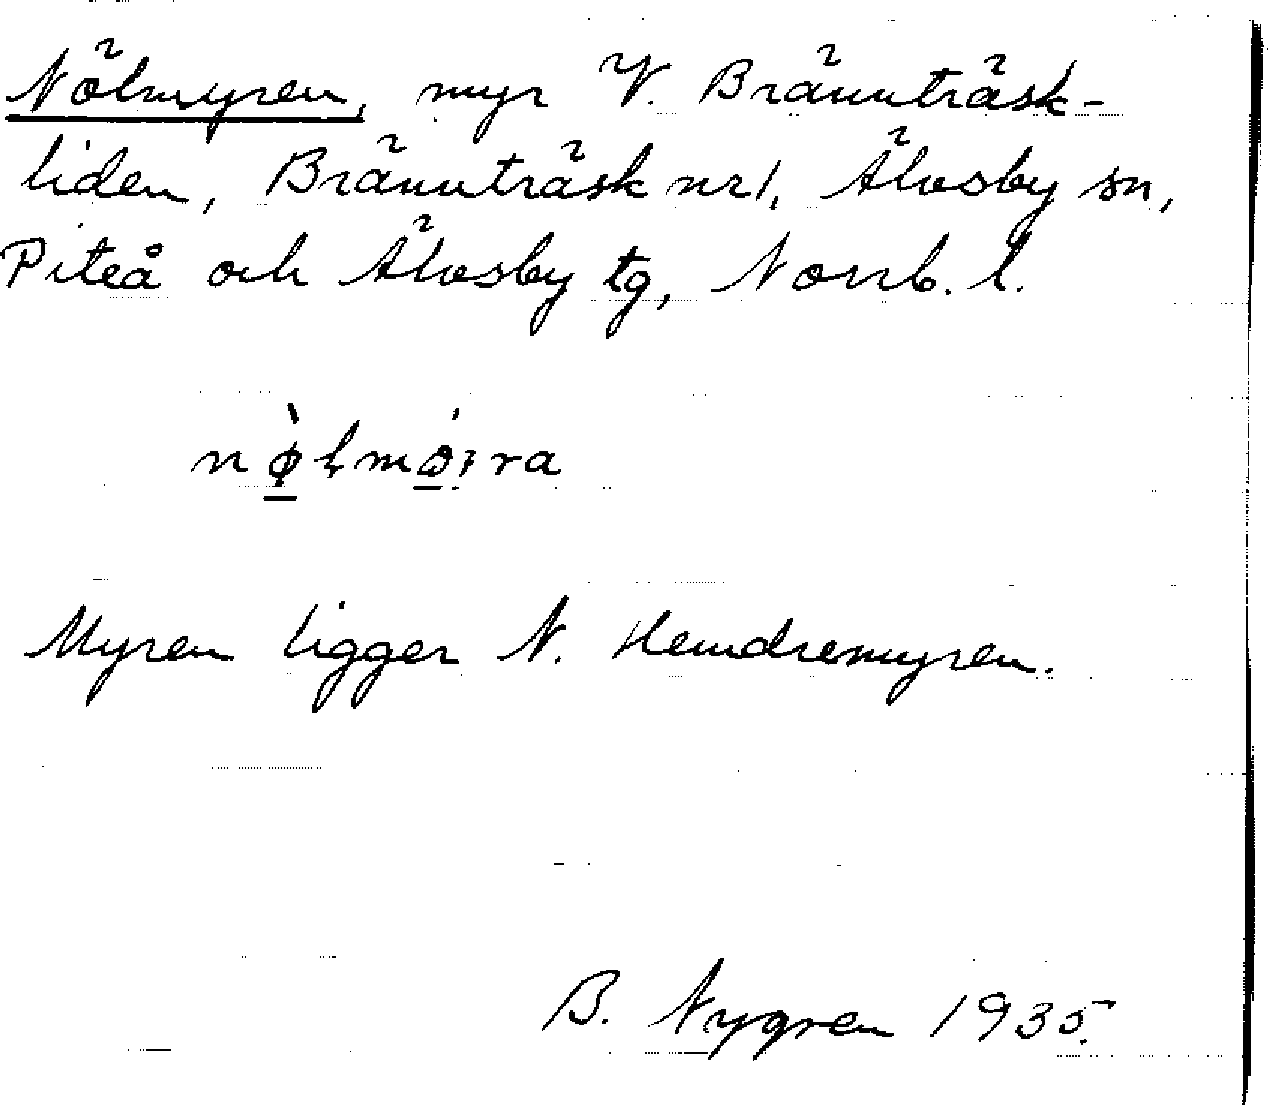 Nölmyren, myr V. Brännträsk-
liden, Brännträsk nr 1, Älvsby sn,
Piteå och Älvsby tg, Norrb. l.
Myren ligger N. Hemdremyren.
B. Nygren 1935.